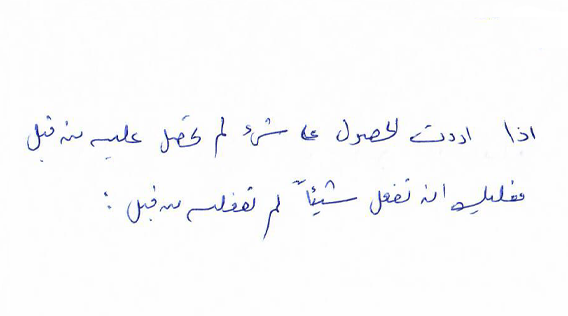 اذا اردت الحصول على شيء لم تحصل عليه من قبل
فعليك ان تفعل شيئاً لم تفعله من قبل :